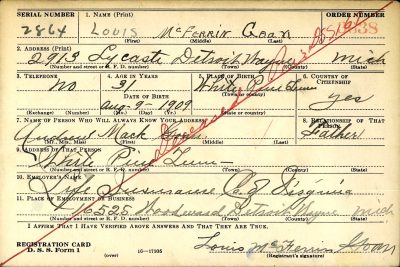 SERIAL NUMBER 1. NAME (Print) ORDER NUMBER
2864 LOUIS McFERRIN Goan
(First) (Middle) (Last)
2. ADDRESS (Print)
2913 Lycaste Detroit Wayne Mich
(Number and street or R. F. D. number) (Town) (County) (State)
3. TELEPHONE 4. AGE IN YEARS 5. PLACE OF BIRTH 6. COUNTRY OF CITIZENSHIP
no 31 White Pine
DATE OF BIRTH
Aug-9-1909 yes
(Mo.) (Day) (Yr.) (State or country)
7. NAME OF PERSON WHO WILL ALWAYS KNOW YOUR ADDRESS 8. RELATIONSHIP OF THAT PERSON
Mack Father
(Mr., Mrs., Miss) (First) (Middle) (Last)
9. ADDRESS OF THAT PERSON
White Pine Tenn
(Number and street or R. F. D. number) (Town) (County) (State)
10. EMPLOYER'S NAME
Life Insurance Co of Virginia
11. PLACE OF EMPLOYMENT OR BUSINESS
16525 Woodward Detroit Wayne Mich
(Number and street or R. F. D. number) (Town) (County) (State)
I AFFIRM THAT I HAVE VERIFIED ABOVE ANSWERS AND THAT THEY ARE TRUE.
REGISTRATION CARD
D. S. S. Form 1 (over) 16—17105 Louis McFerrin Goan
(Registrant's signature)